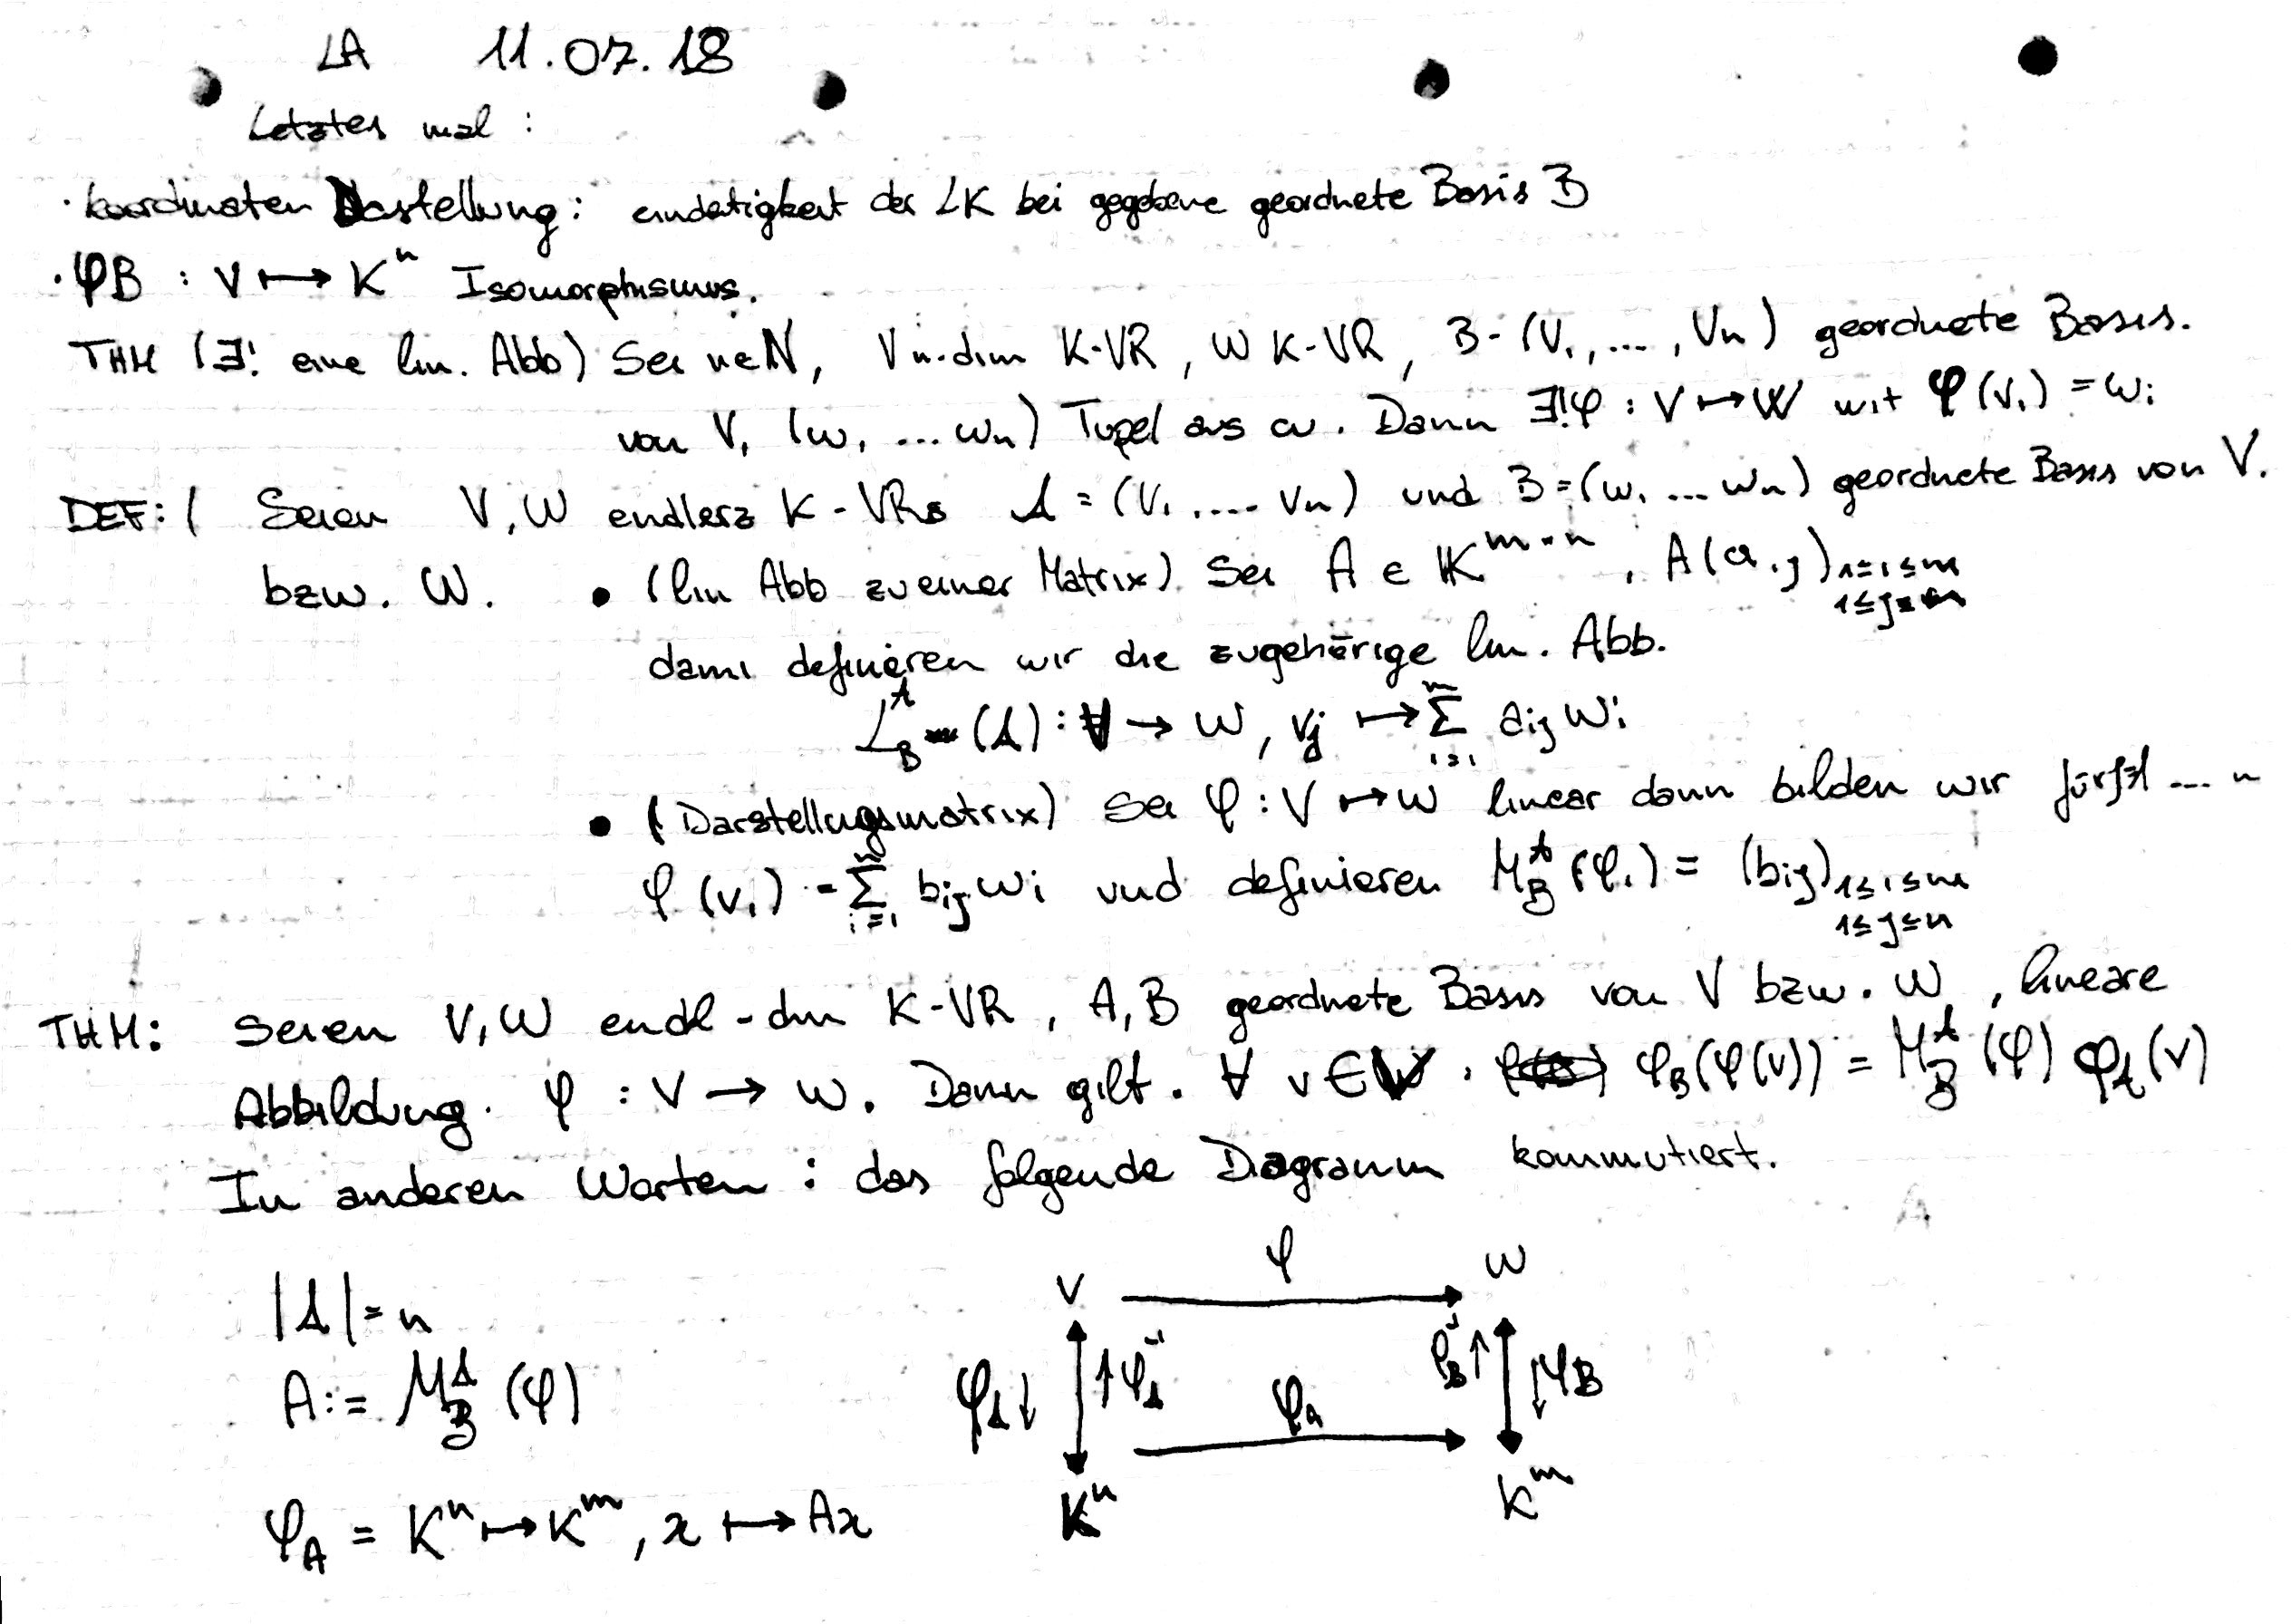 LA 11.07.18
Letztes mal :
· koordinaten Dastellung : eindetigkeit der LK bei gegebene geordnete Basis B
· φB : V ↦ Kⁿ Isomorphismus.
THM (∃! eine lin. Abb) Sei n∈ℕ, V n-dim K-VR, W K-VR, B-(V₁,...,Vn) geordnete Basis.
von V, (w₁ ... wn) Tupel aus W. Dann ∃!φ : V ↦ W mit φ(v₁) = wi
DEF: ( Seien V,W K-VRs A = (V₁,.... Vn) und B=(w₁ ... wn) geordnete Basis von V.
bzw. W. • (lin Abb zu einer Matrix) Sei A ∈ 𝕂^m×n, A(a,j) 1≤i≤m
1≤j≤
dami definieren wir die zugehörige lin. Abb.
L_B^A (A) : V → W, vj ↦ Σ_{i=1}^m aij wi
• (Darstellugsmatrix) Sei φ : V ↦ W linear dann bilden wir für j=1 ... n
φ (v₁) = Σ_{i=1}^m bij wi und definieren M_B^A (φ.) = (bij) 1≤i≤m
1≤j≤n
THM: Seien V,W endl-dim K-VR, A,B geordnete Basis von V bzw. W, lineare
Abbildung. φ : V → W. Dann gilt. ∀ v ∈ V. φ_B(φ(v)) = M_B^A (φ) φ_A(v)
In anderen Worten : das folgende Diagramm kommutiert.
|A| = n
A := M_B^A (φ)
φ_A = Kⁿ ↦ K^m, x ↦ Ax
φ
V → W
φ_A ↓ ↑ φ_A^-1 φ_B^-1 ↑ ↓ φB
φ_A
Kⁿ → K^m